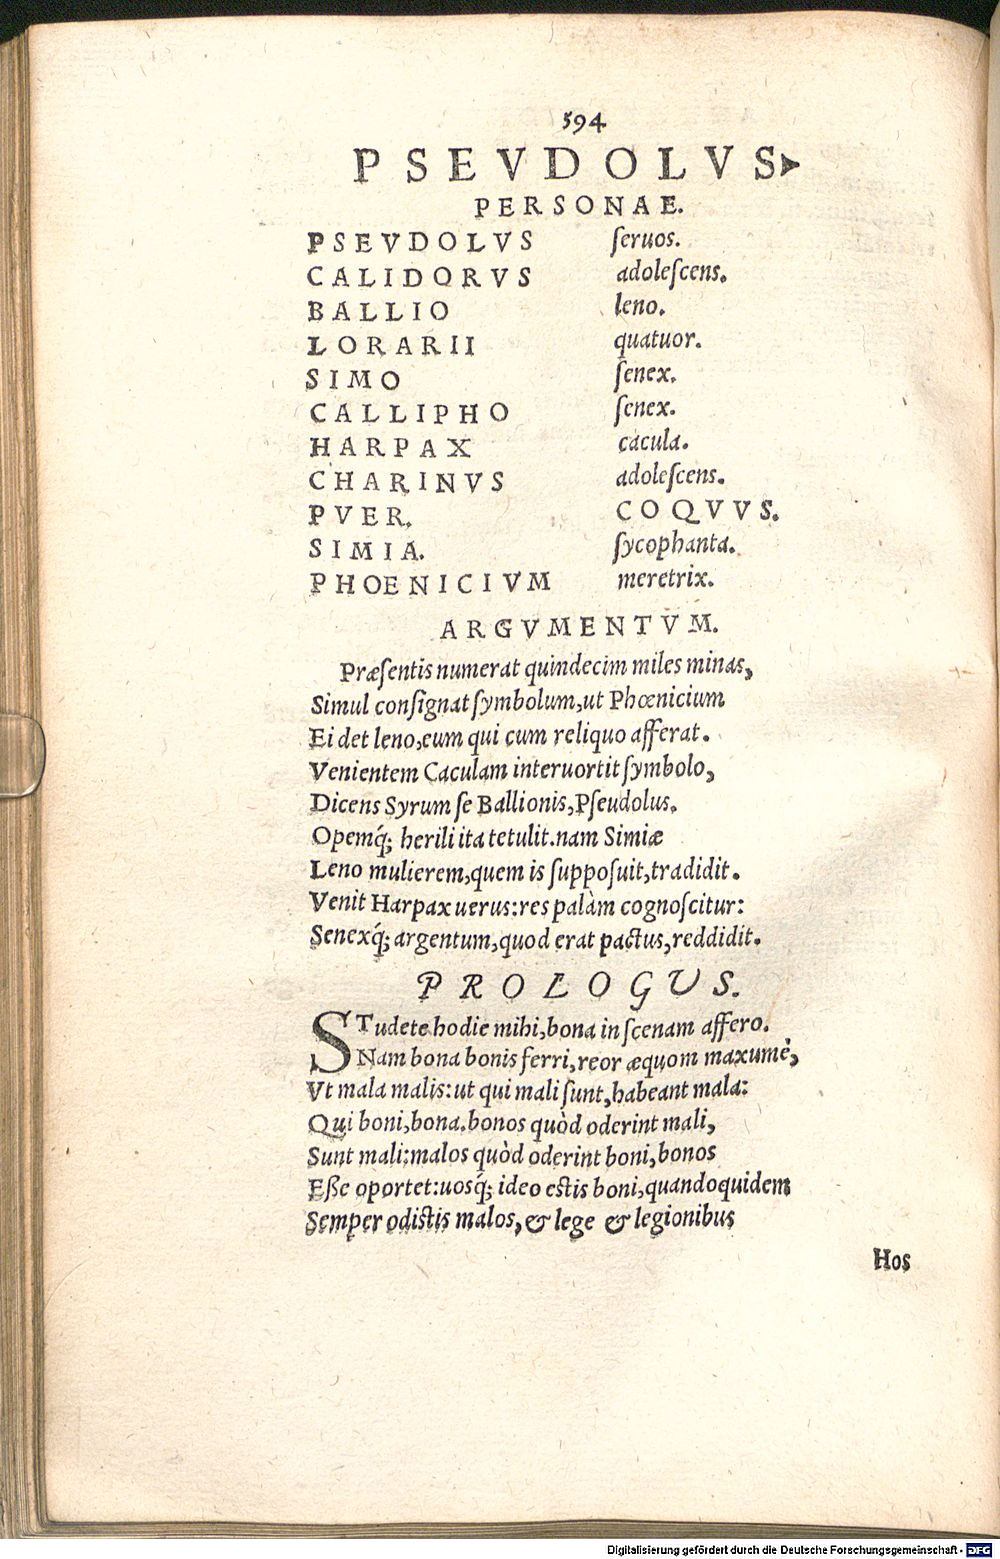 594
PSEVDOLVS
PERSONAE.
PSEVDOLVS ſeruos.
CALIDORVS adoleſcens.
BALLIO leno.
LORARII quatuor.
SIMO ſenex.
CALLIPHO ſenex.
HARPAX cacula.
CHARINVS adoleſcens.
PVER. COQVVS.
SIMIA. ſycophanta.
PHOENICIVM meretrix.
ARGVMENTVM.
Præſentis numerat quindecim miles minas,
Simul conſignat ſymbolum, ut Phœnicium
Ei det leno, eum qui cum reliquo afferat.
Venientem Caculam interuortit ſymbolo,
Dicens Syrum ſe Ballionis, Pſeudolus.
Opemq́; herili ita tetulit. nam Simiæ
Leno mulierem, quem is ſuppoſuit, tradidit.
Venit Harpax uerus: res palàm cognoſcitur:
Senexq́; argentum, quod erat pactus, reddidit.
PROLOGUS.
STudete hodie mihi, bona in ſcenam affero.
Nam bona bonis ferri, reor æquom maxumè,
Vt mala malis: ut qui mali ſunt, habeant mala:
Qui boni, bona. bonos quòd oderint mali,
Sunt mali: malos quòd oderint boni, bonos
Eße oportet: uosq́; ideo eſtis boni, quandoquidem
Semper odiſtis malos, & lege & legionibus
Hos
Digitalisierung gefördert durch die Deutsche Forschungsgemeinschaft - DFG